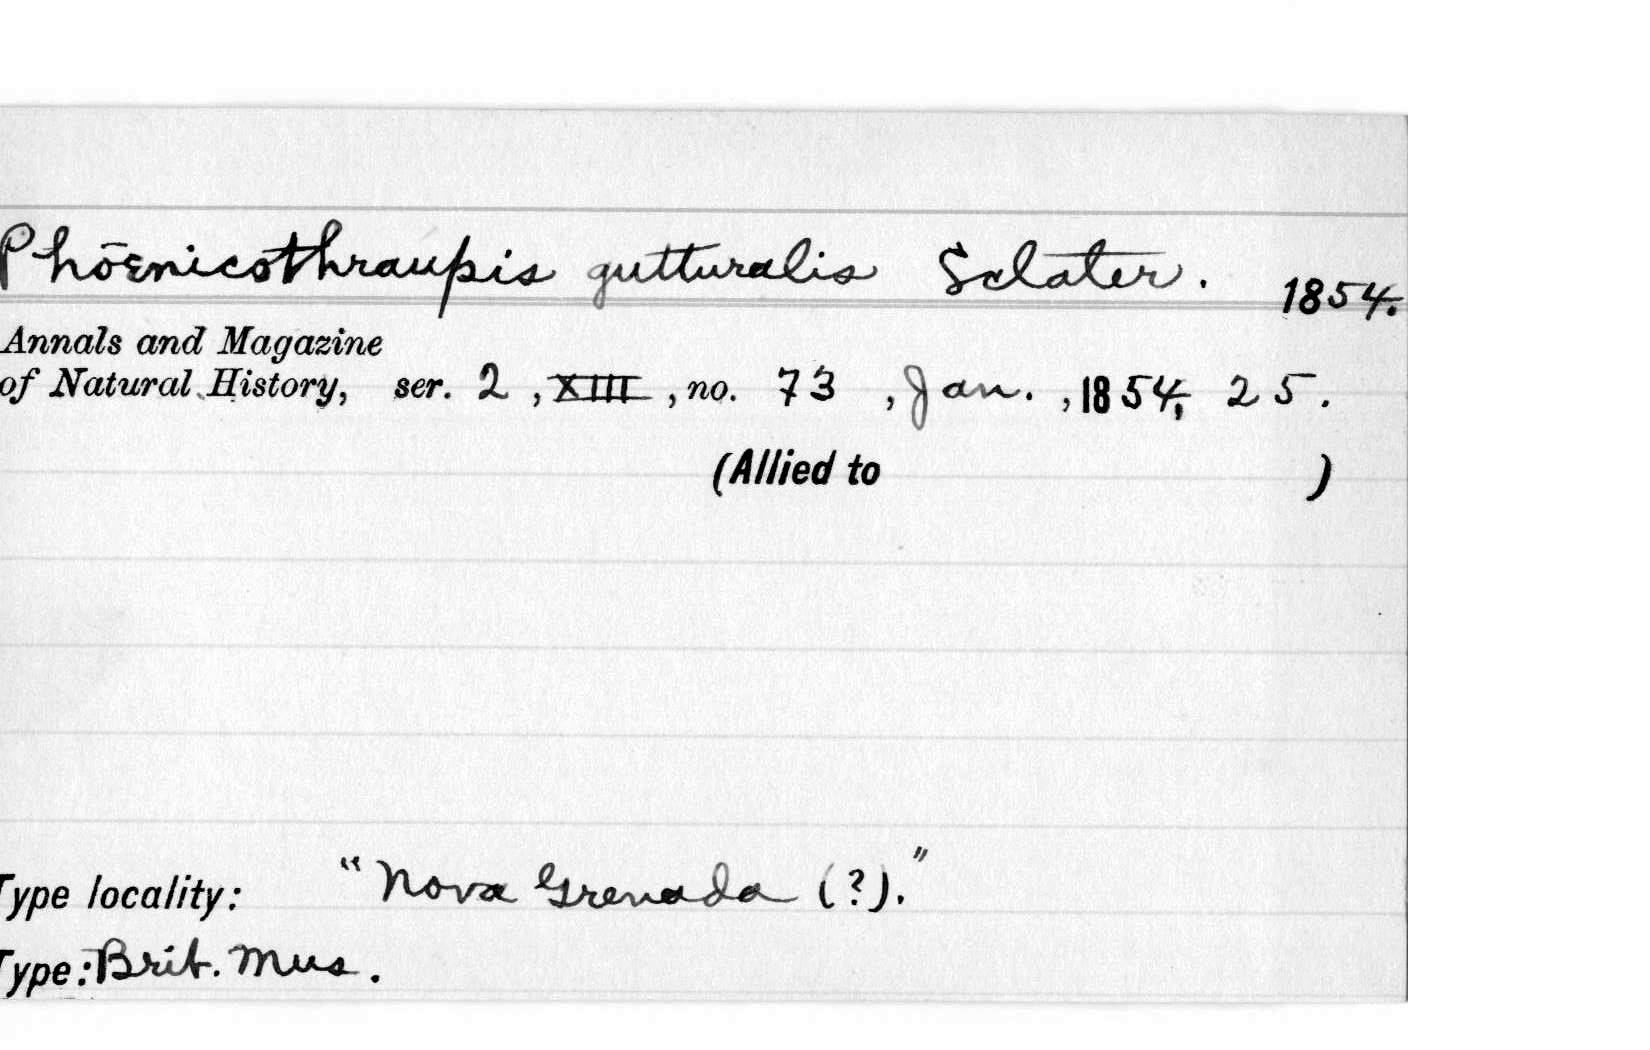 Phoenicothraupis gutturalis Sclater. 1854.
Annals and Magazine
of Natural History, ser. 2, XIII, no. 73, Jan., 1854, 25.
(Allied to )
Type locality: "Nova Grenada (?)."
Type: Brit. Mus.